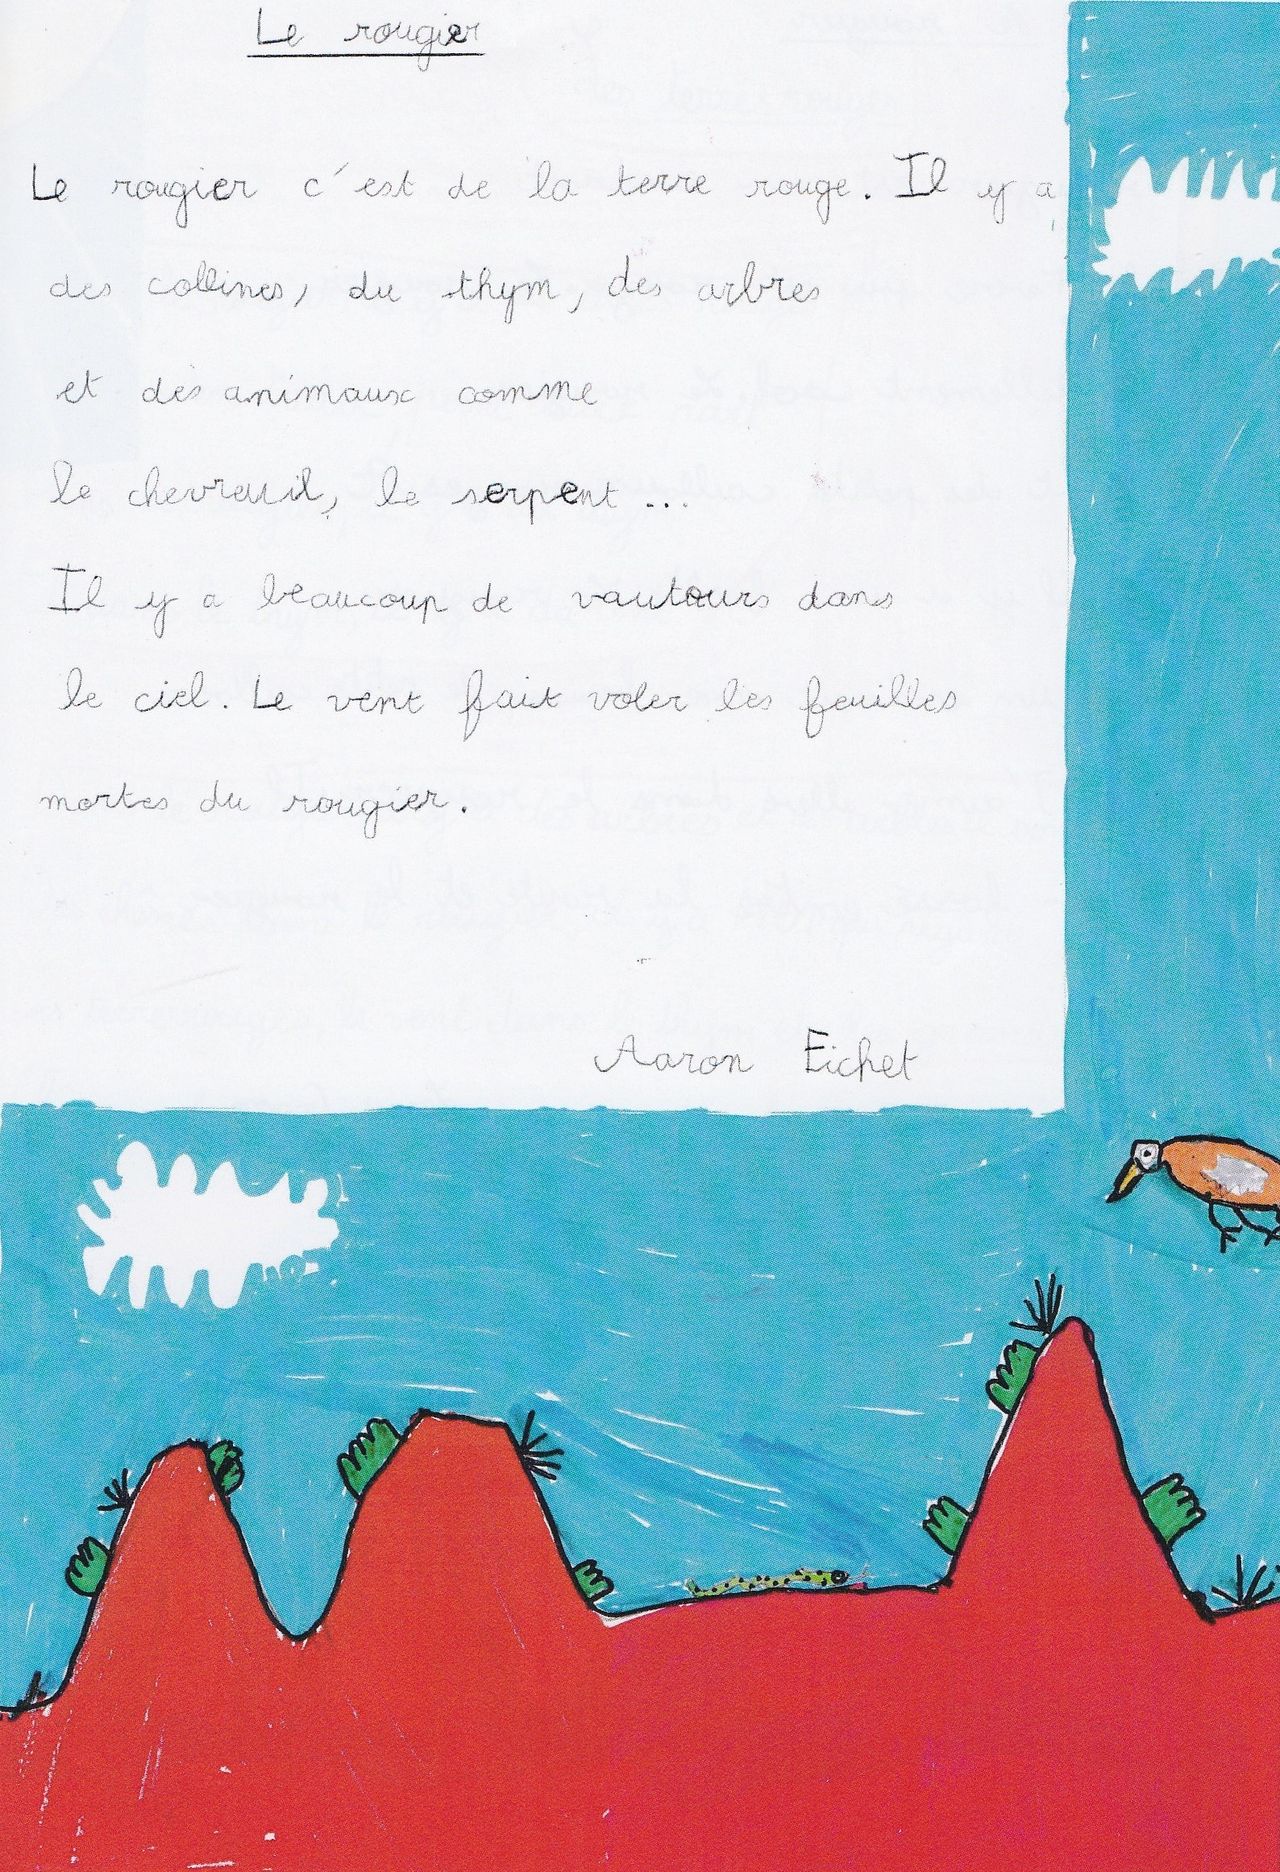 Le rougier
Le rougier c'est de la terre rouge. Il y a
des collines, du thym, des arbres
et des animaux comme
le chevreuil, le serpent ...
Il y a beaucoup de vautours dans
le ciel. Le vent fait voler les feuilles
mortes du rougier.
Aaron Eichet